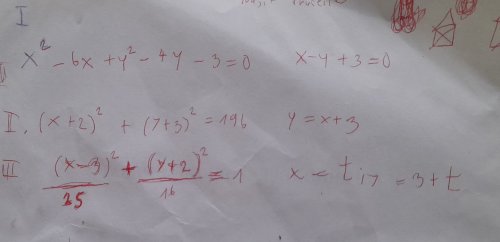 I
x² - 6x + y² - 4y - 3 = 0   x - y + 3 = 0
II. (x+2)² + (y+3)² = 196   y = x + 3
III (x-3)²/25 + (y+2)²/16 = 1   x = t i y = 3 + t